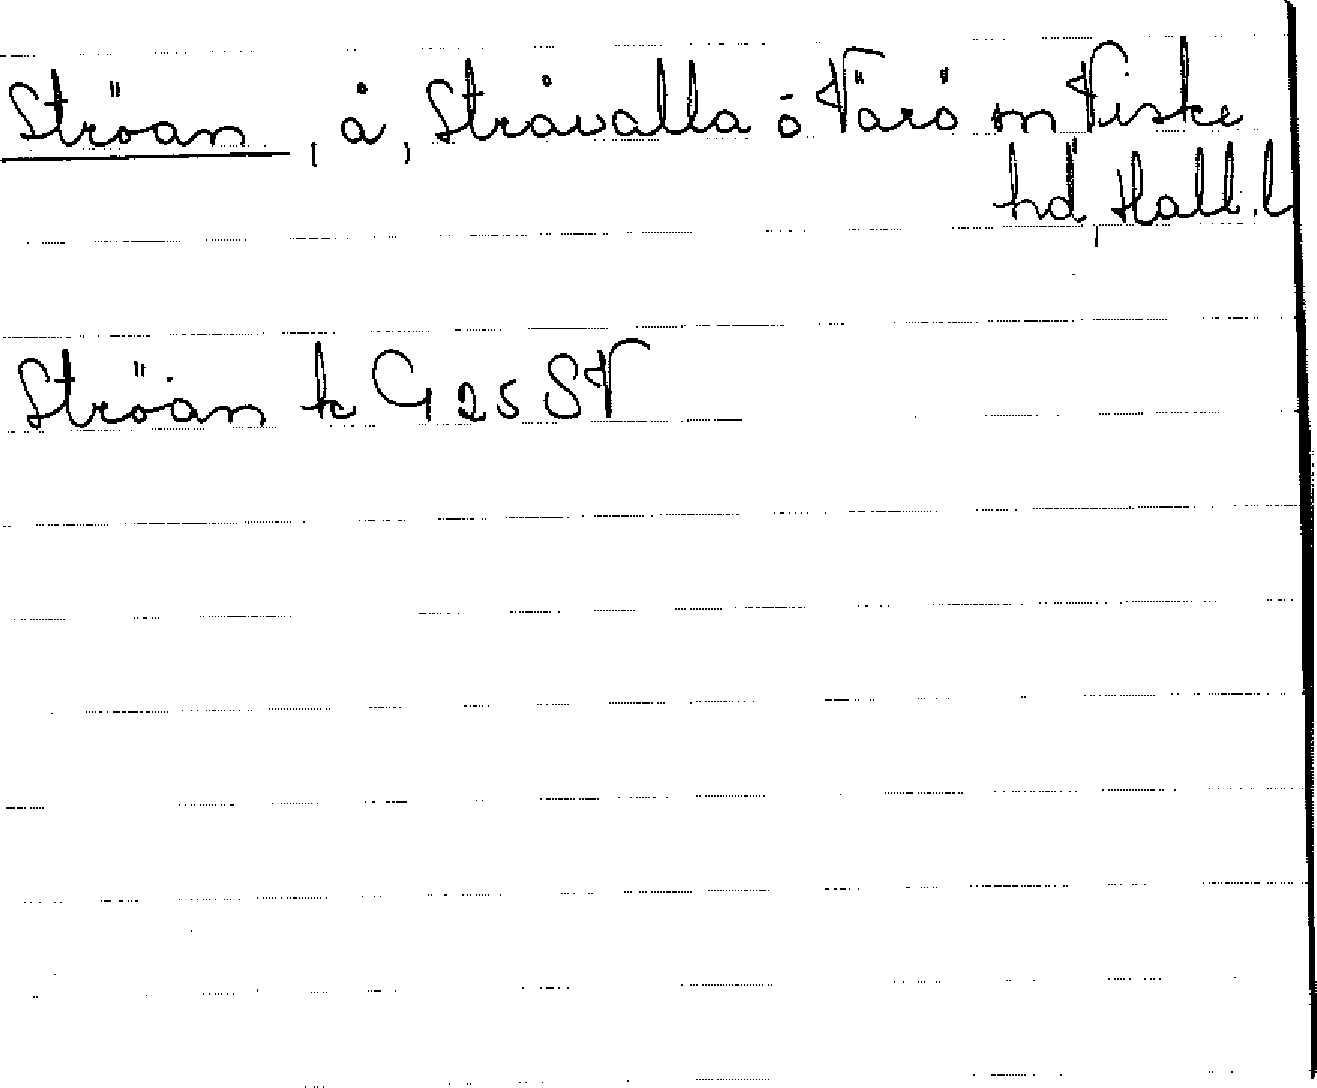 Ströan, å, Stråvalla ö Värö sn Viske
hd, Hall.l
Ströån k G 25 SV